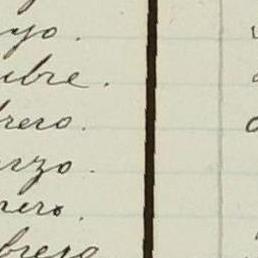 yo.
ubre.
brero.
arzo.
nero.
brero